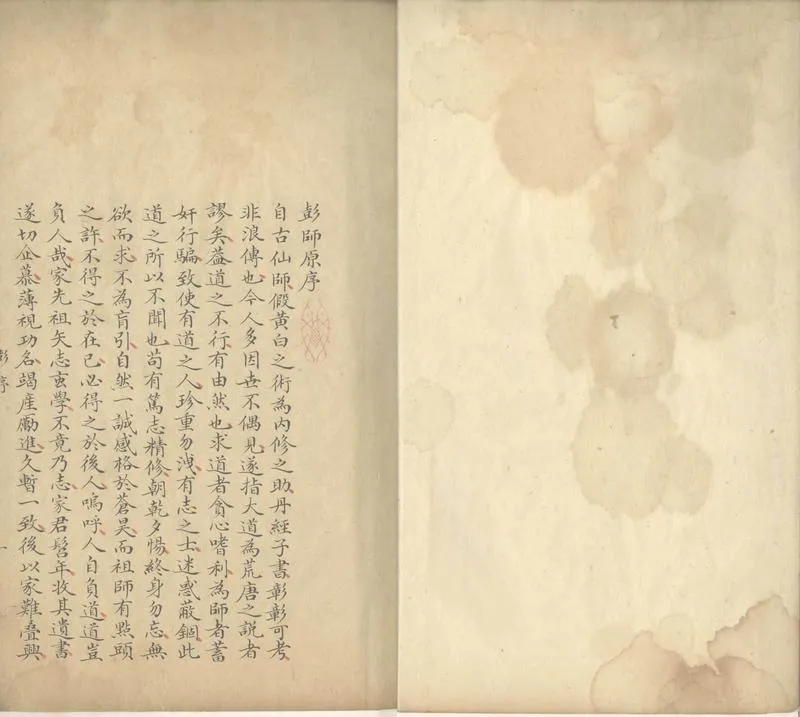 彭師原序
自古仙師假黃白之術為內修之助丹經子書彰彰可考
非浪傳也今人多因世不偶見遂指大道為荒唐之說者
謬矣葢道之不行有由然也求道者貪心嗜利為師者蓄
奸行騙致使有道之人珍重勿洩有志之士迷惑蔽錮此
道之所以不聞也苟有篤志精修朝乾夕惕終身勿忘無
欲而求不為肓引自然一誠感格於蒼昊而祖師有點頭
之許不得之於在己必得之於後人嗚呼人自負道道豈
負人哉家先祖矢志玄學不竟乃志家君髫年收其遺書
遂切企慕薄視功名竭產勵進久暫一致後以家難疊興
彭序
一